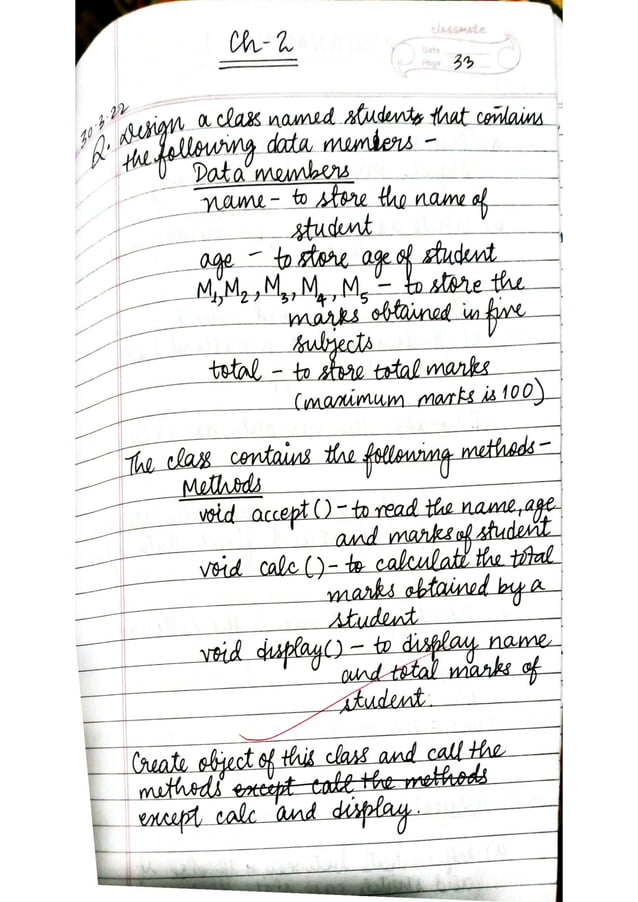 classmate
Date
Page 33
Ch-2
30.3.22
Q. Design a class named students that contains
the following data members -
Data members
name - to store the name of
student
age - to store age of student
M1, M2, M3, M4, M5 - to store the
marks obtained in five
subjects
total - to store total marks
(maximum marks is 100)
The class contains the following methods -
Methods
void accept() - to read the name, age
and marks of student
void calc() - to calculate the total
marks obtained by a
student
void display() - to display name
and total marks of
student.
Create object of this class and call the
methods except call the methods
except calc and display.